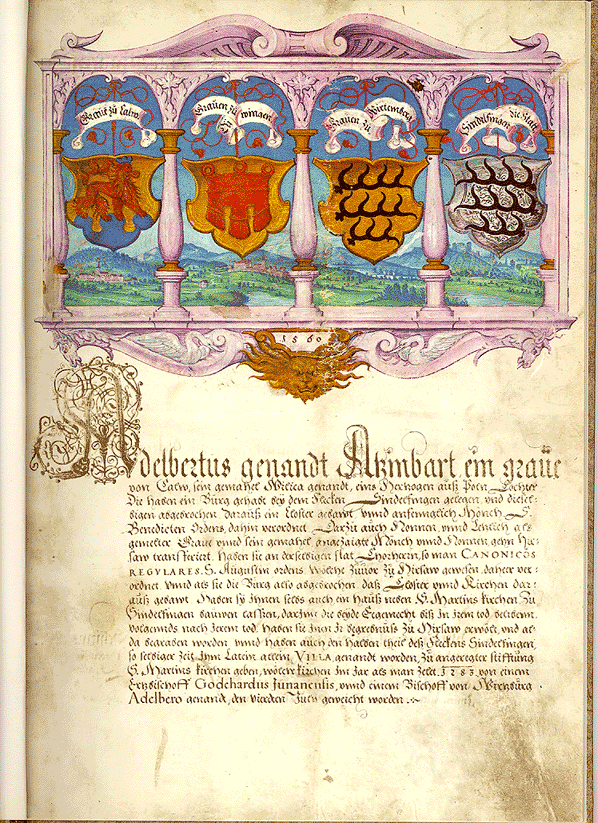 Graue zu Calw
Grauen zu
Grauen zu Wirtemberg
Sindelfingen die Statt
1560
Adelbertus genandt Atzimbart, ein graue
von Calw, sein gemahel Wilica genandt, eins Hertzogen auß Poln Tochter
Die haben ein Burg gehabt bey dem Flecken Sindelfingen gelegen, vnd dieselbigen
abgebrochen Darauß ein Closter gebawt vnnd anfenglich Mönch S.
Benedicten Ordens, dahin verordnet Dartzu auch Nonnen, vnnd
gemelter Graue vnnd sein gemahel angezaigte Mönch vnnd Nonnen gehn Hirsaw
transferiert, haben sie an derselbigen stat Chorherrn, so man CANONICOS
REGVLARES, S. Augustin ordens, Wölche zuuor zu Hirsaw gewesen, daher verordnet
vnnd als sie die Burg also abgebrochen, daß Closter vnnd Kirchen darauß
gebawt, Haben sy Jnnen selbs auch ein hauß neben S. Martins kirchen zu
Sindelfingen bauwen lassen, darinne die beyde Eegemecht biß zu Jrem tod, beliben,
volgennds nach Jerem tod, haben sie Jnen Jr begrebnuß zu Hirsaw erwölt, vnd alda
begraben worden vnnd haben auch den halben theil deß fleckens Sindelfingen,
so selbiger zeit Jnn Latein allein VILLA, genandt worden, zu angeregter stifftung
S. Martins kirchen geben, wölche kirchen Jm Jar als man zelet, 1283, von einem
Ertzbischoff Godchardus Junanensis, vnnd einem Bischoff von Wirtzburg
Adelbero genand, den vierden Julij geweicht worden.